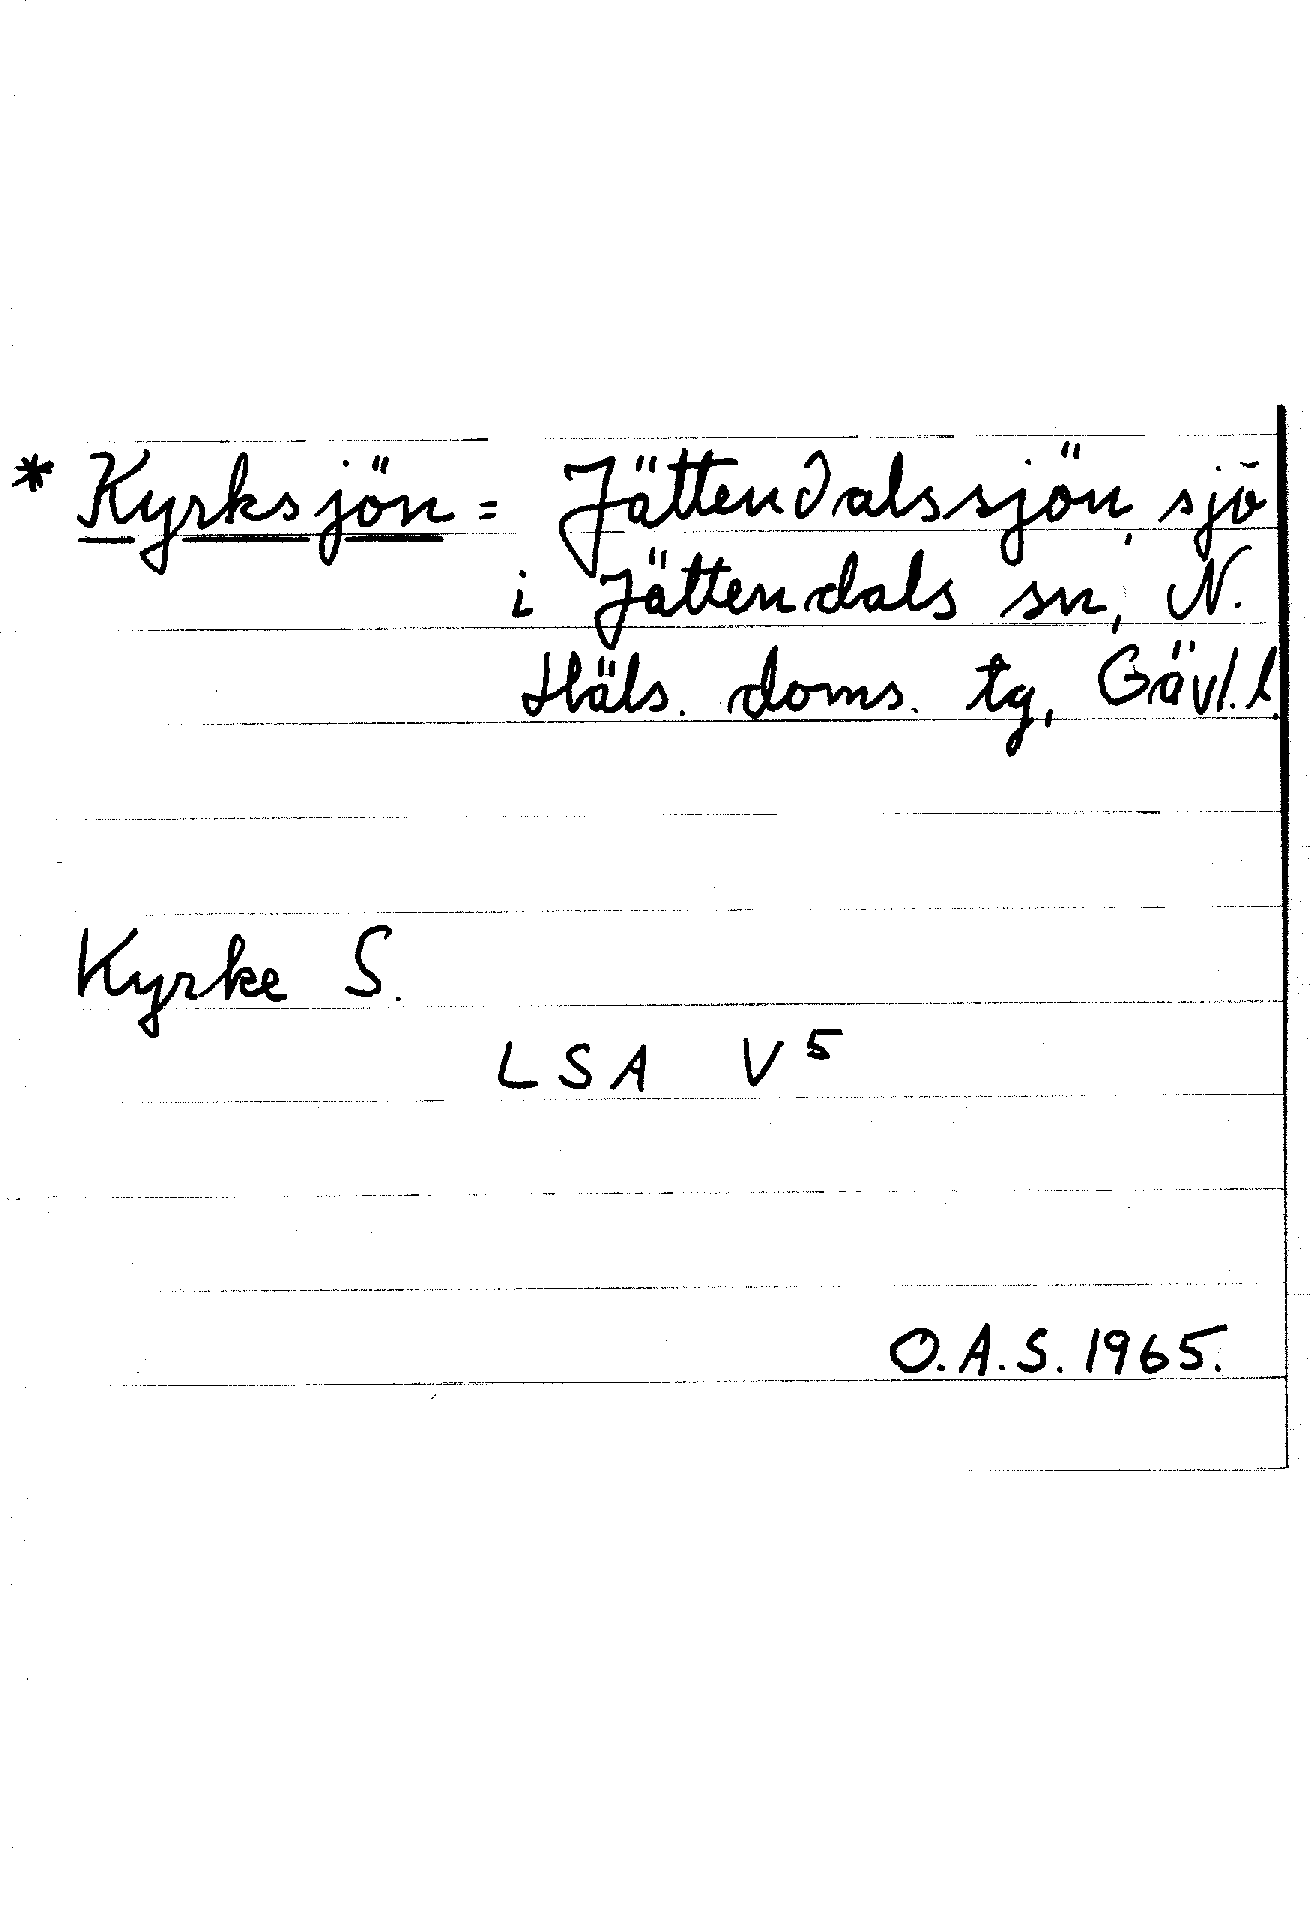 * Kyrksjön = Jättendalssjön, sjö
i Jättendals sn, N.
Häls. doms. tg, Gävl. l.
Kyrke S.
LSA V5
O.A.S. 1965.